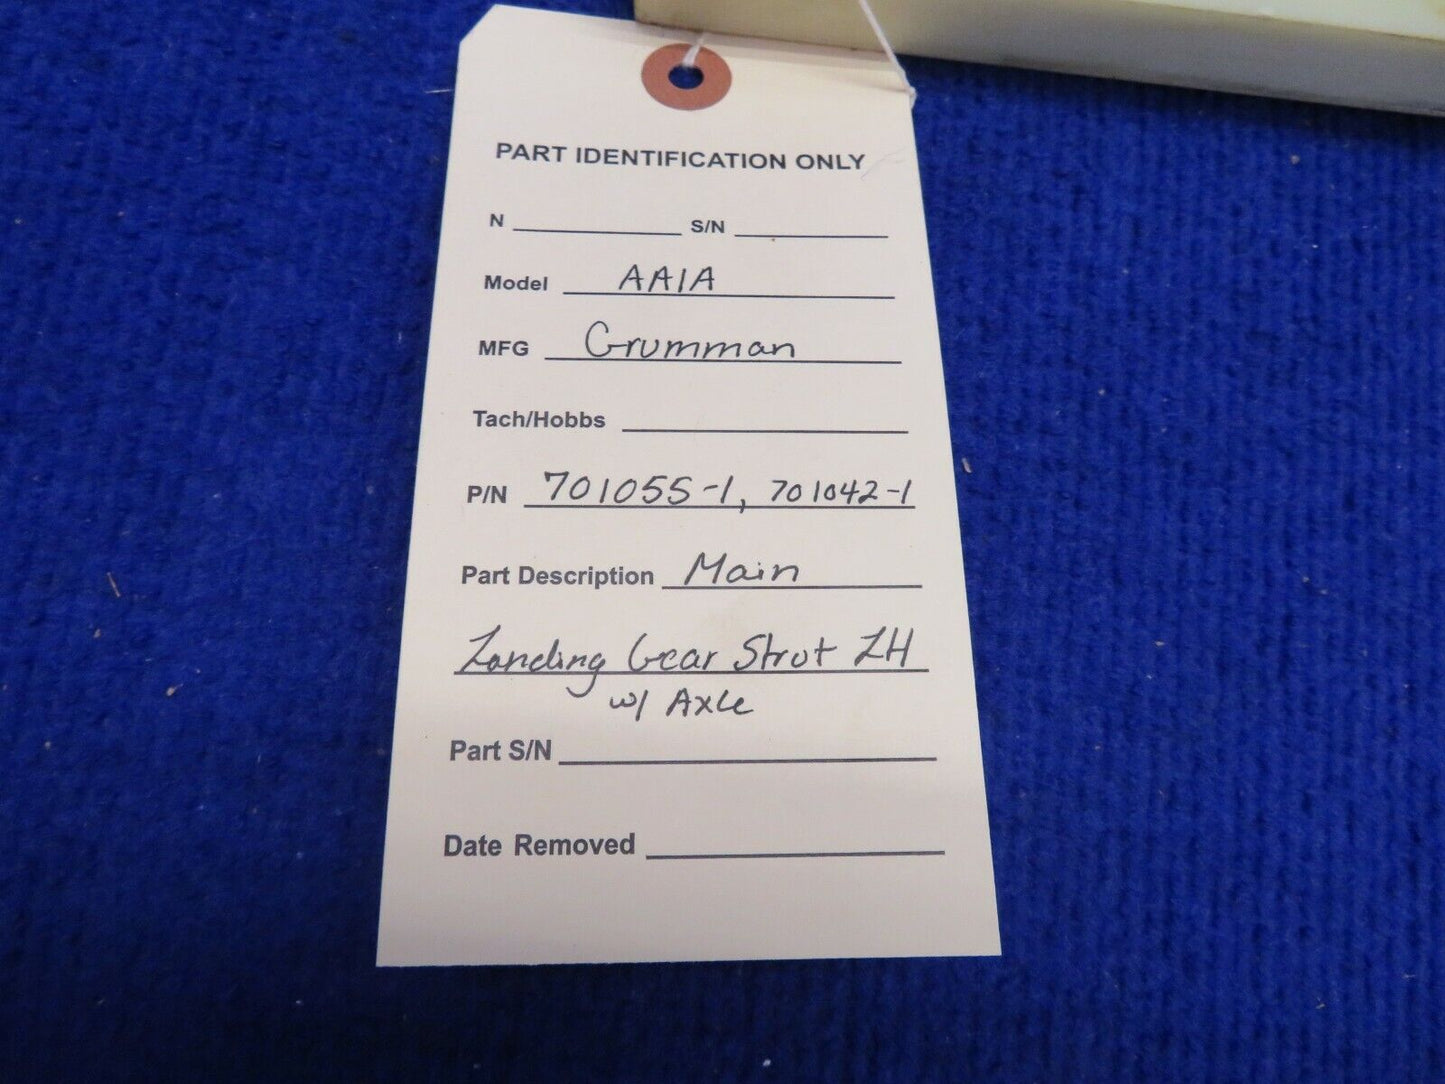 PART IDENTIFICATION ONLY
N S/N
Model AA1A
MFG Grumman
Tach/Hobbs
P/N 701055-1, 701042-1
Part Description Main
Landing Gear Strut LH
w/ Axle
Part S/N
Date Removed